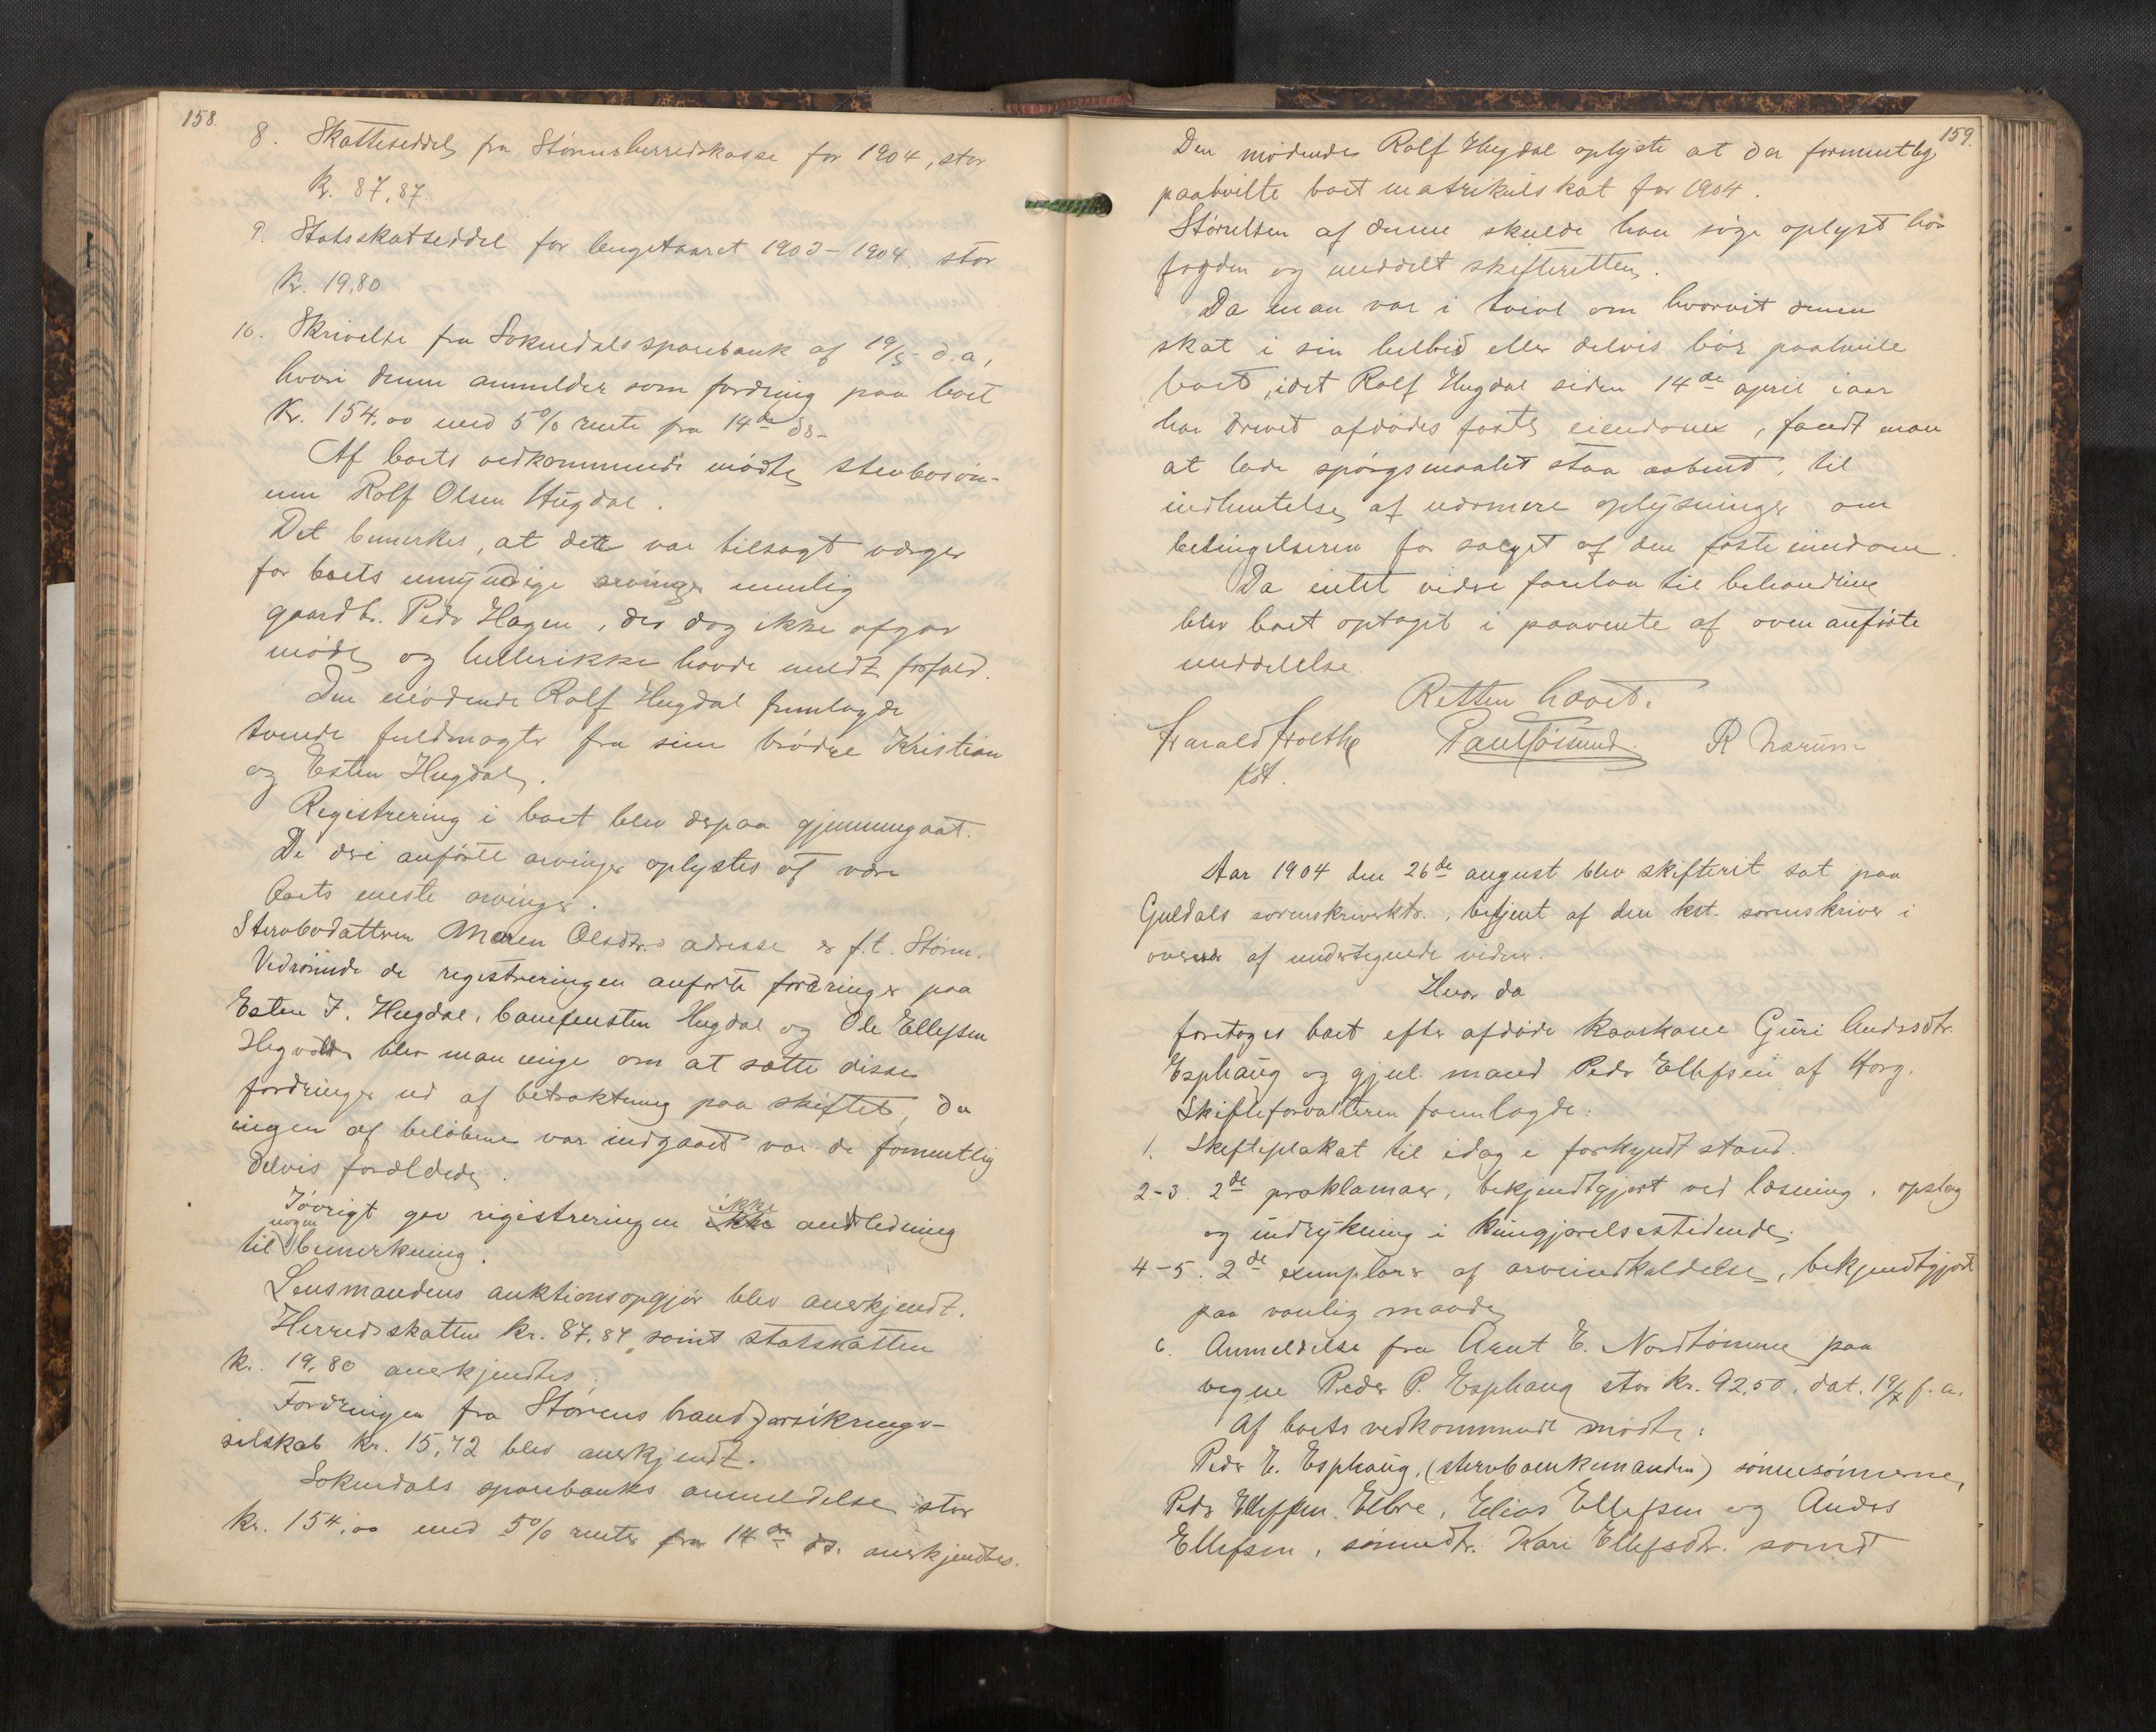 158.
8. Skatteseddel fra Størens herredskasse for 1904, stor
Kr. 87,87.
9. Statsskatseddel for bugetaaret 1903-1904. stor
Kr. 19.80
10. Skrivelse fra Soknedals sparebank af 19/5 d.a,
hvori denne anmelder som fordring paa boet
Kr. 154,00 med 5% rente fra 14de ds.
Af boets vedkommende mødte stervbosøn-
nen Rolf Olsen Hugdal.
Det bemerkes, at dette var tilsagt værger
for boets umyndige arvinger nemlig
gaardbr. Peder Hagen, der dog ikke afgav
møde og hellerikke havde meldt forfald.
Den mødende Rolf Hugdal fremlagde
tvende fuldmagter fra sine brødre Kristian
og Esten Hugdal.
Registrering i boet blev derpaa gjennemgaat.
De deri anførte arvinger oplystes at være
boets eneste arvinger.
Stervbodatteren Maren Olsdtr.s adresse er f.t. Støren.
Vedrørende de registreringen anførte fordringer paa
Esten J. Hugdal, Hugdal og Ole Ellefsen
blev man enige om at sætte disse
fordringer ud af betraktning paa skiftet, da
ingen af beløbene var indgaaet var de formentlig
delvis forældede.
Iøvrigt gav registreringen ikke ikke andledning
til nogen bemerkning.
Lensmandens auktionsopgjør blev anerkjendt.
Herredsskatten kr. 87.87 samt statsskatten
kr. 19,80 anerkjendtes.
Fordringen fra Størens brandforsikrings-
selskab kr. 15,72 blev anerkjendt.
Soknedals sparebanks anmeldelse stor
kr. 154,00 med 5% renter fra 14de ds. anerkjendtes.
159.
Den mødende Rolf Hugdal oplyste at der formentlig
paahvilte boet matrikulskat for 1904.
Størrelsen af denne skulde han søge oplyst hos
fogden og meddelt skifteretten.
Da man var i tvivl om hvorvit denne
skat i sin helhed eller delvis bør paahvile
boet, idet Rolf Hugdal siden 14de april iaar
har drevet afdødes faste eiendom, fandt man
at lade spørgsmaalet staa aabent, til
indhentelse af nærmere oplysninger om
betingelserne for salget af den faste eiendom.
Da intet videre forelaa til behandling
blev boet optaget i paavente af ovenanførte
meddelelse.
Retten hævet.
Harald Grothe Paul Fosund. R Nærum
kst.
Aar 1904 den 26de august blev skifteret sat paa
Guldals sorenskriverktr., betjent af den kst. sorenskriver i
overvær af undertegnede vidner.
Hvor da
foretoges boet efter afdøde kaarkone Guri Andersdtr.
Esphaug og gjenl. mand Peder Ellefsen af Horg.
Skifteforvalteren fremlagde:
1. Skifteplakat til idag i forkyndt stand.
2-3. 2de proklamaer, bekjendtgjort ved læsning, opslag
og indrykning i kungjørelsestidende.
4-5. 2de exemplarer af arveindkaldelse, bekjendtgjort
paa vanlig maade
6. Anmeldelse fra Arnt E. Nordtømme paa
vegne Peder P. Esphaug stor kr. 92,50, dat. 19/7 f.a.
Af boets vedkommende mødte:
Peder E. Esphaug, (stervboenkemanden) sønnesønnerne,
Peder Ellefsen Elbre, Elias Ellefsen og Anders
Ellefsen, sønnedtr. Kari Ellefsdtr. samt